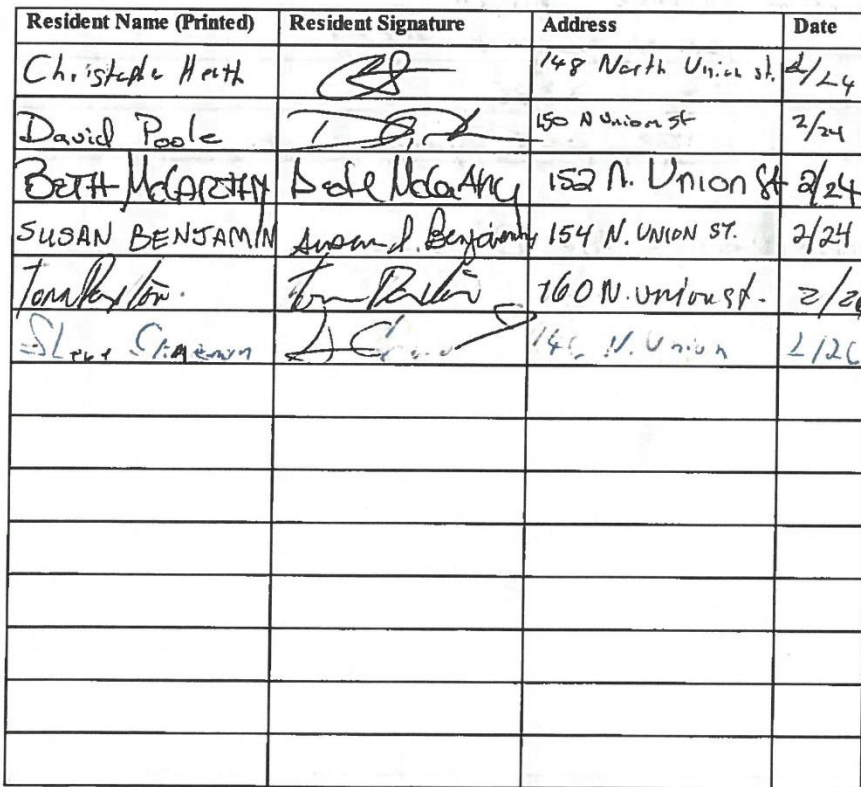 Resident Name (Printed) Resident Signature Address Date
Heath 148 North Union St. 2/24
David Poole 150 N Union St 2/24
BETH McCARTHY Beth McCarthy 152 N. Union St 2/24
SUSAN BENJAMIN Susan D. Benjamin 154 N. UNION ST. 2/24
Tom 160 N. Union St. 2/26
Steve N. Union 2/26